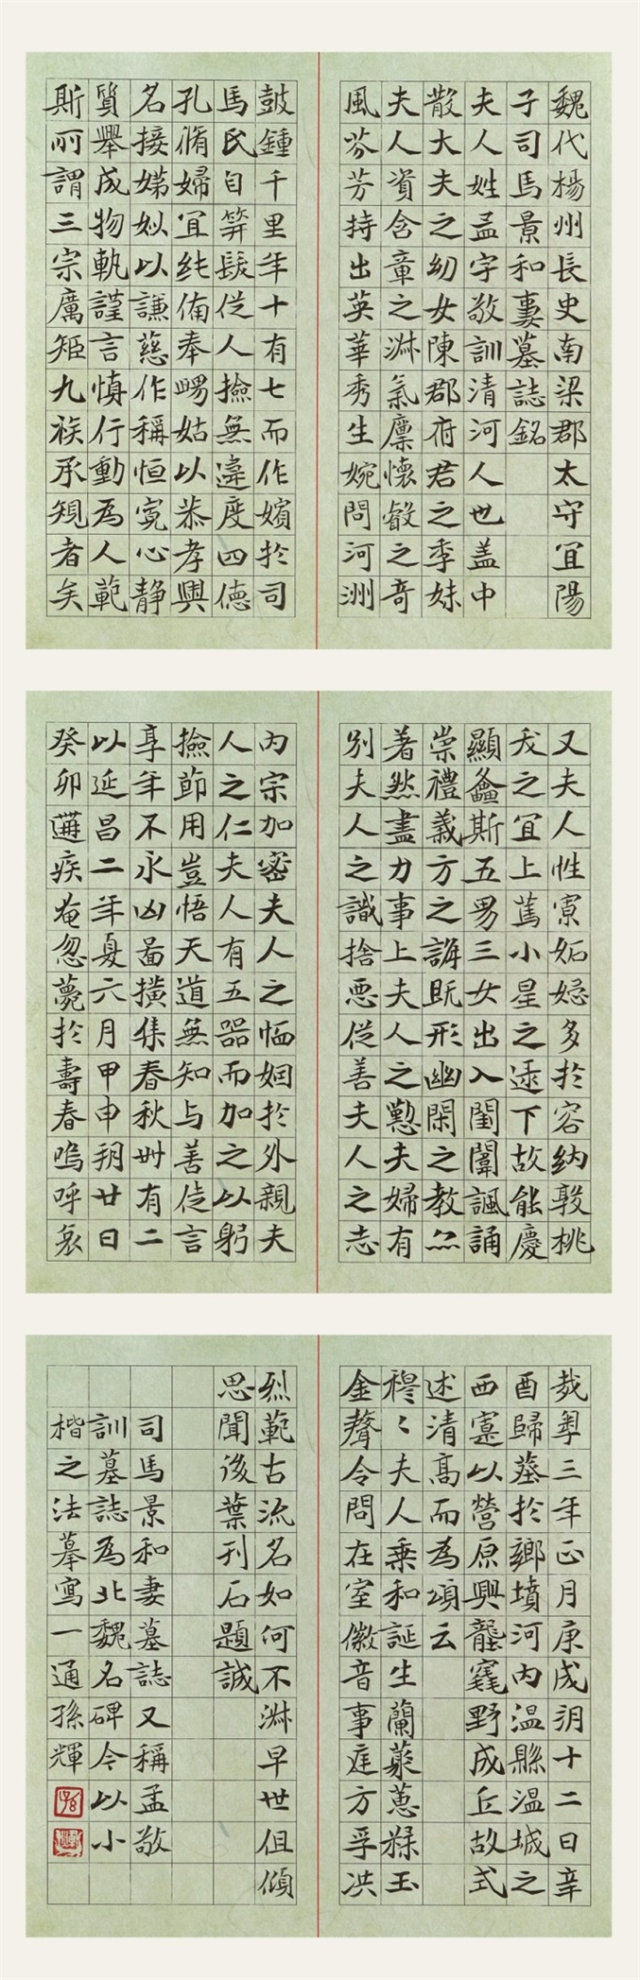 魏代楊州長史南梁郡太守宜陽
子司馬景和妻墓誌銘
夫人姓孟字敬訓清河人也盖中
散大夫之幼女陳郡府君之季妹
夫人資含章之淋氣廪懷叡之奇
風芬芳特出英華秀生婉問河洲
鼓鍾千里年十有七而作嬪於司
馬氏自笄髮從人撿無違度四德
孔脩婦宜純備奉舅姑以恭孝興
名接娣姒以謙慈作稱恒寬心静
質舉成物軌謹言慎行動為人範
斯所謂三宗厲矩九族承規者矣
又夫人性寡妬嫉多於容納敦桃
夭之宜上篤小星之逮下故能慶
顯螽斯五男三女出入閨闈諷誦
崇禮義方之誨既形幽閑之教亦
著然盡力事上夫人之懃夫婦有
別夫人之識捨惡從善夫人之志
内宗加密夫人之恤姻於外親夫
人之仁夫人有五器而加之以躬
撿節用豈悟天道無知与善徒言
享年不永凶啚横集春秋卌有二
以延昌二年夏六月甲申朔廿日
癸卯遘疾奄忽薨於壽春嗚呼哀
哉粤三年正月庚戌朔十二日辛
酉歸塟於鄉墳河内温縣温城之
西寔以營原興壟窀野成丘故式
述清高而為頌云
穆〻夫人乗和誕生蘭蕤蕙糅玉
金聲令問在室徽音事庭方孚洪
烈範古流名如何不淋早世徂傾
思聞後葉刊石題誠
司馬景和妻墓誌又稱孟敬
訓墓誌為北魏名碑今以小
楷之法摹寫一通孫輝